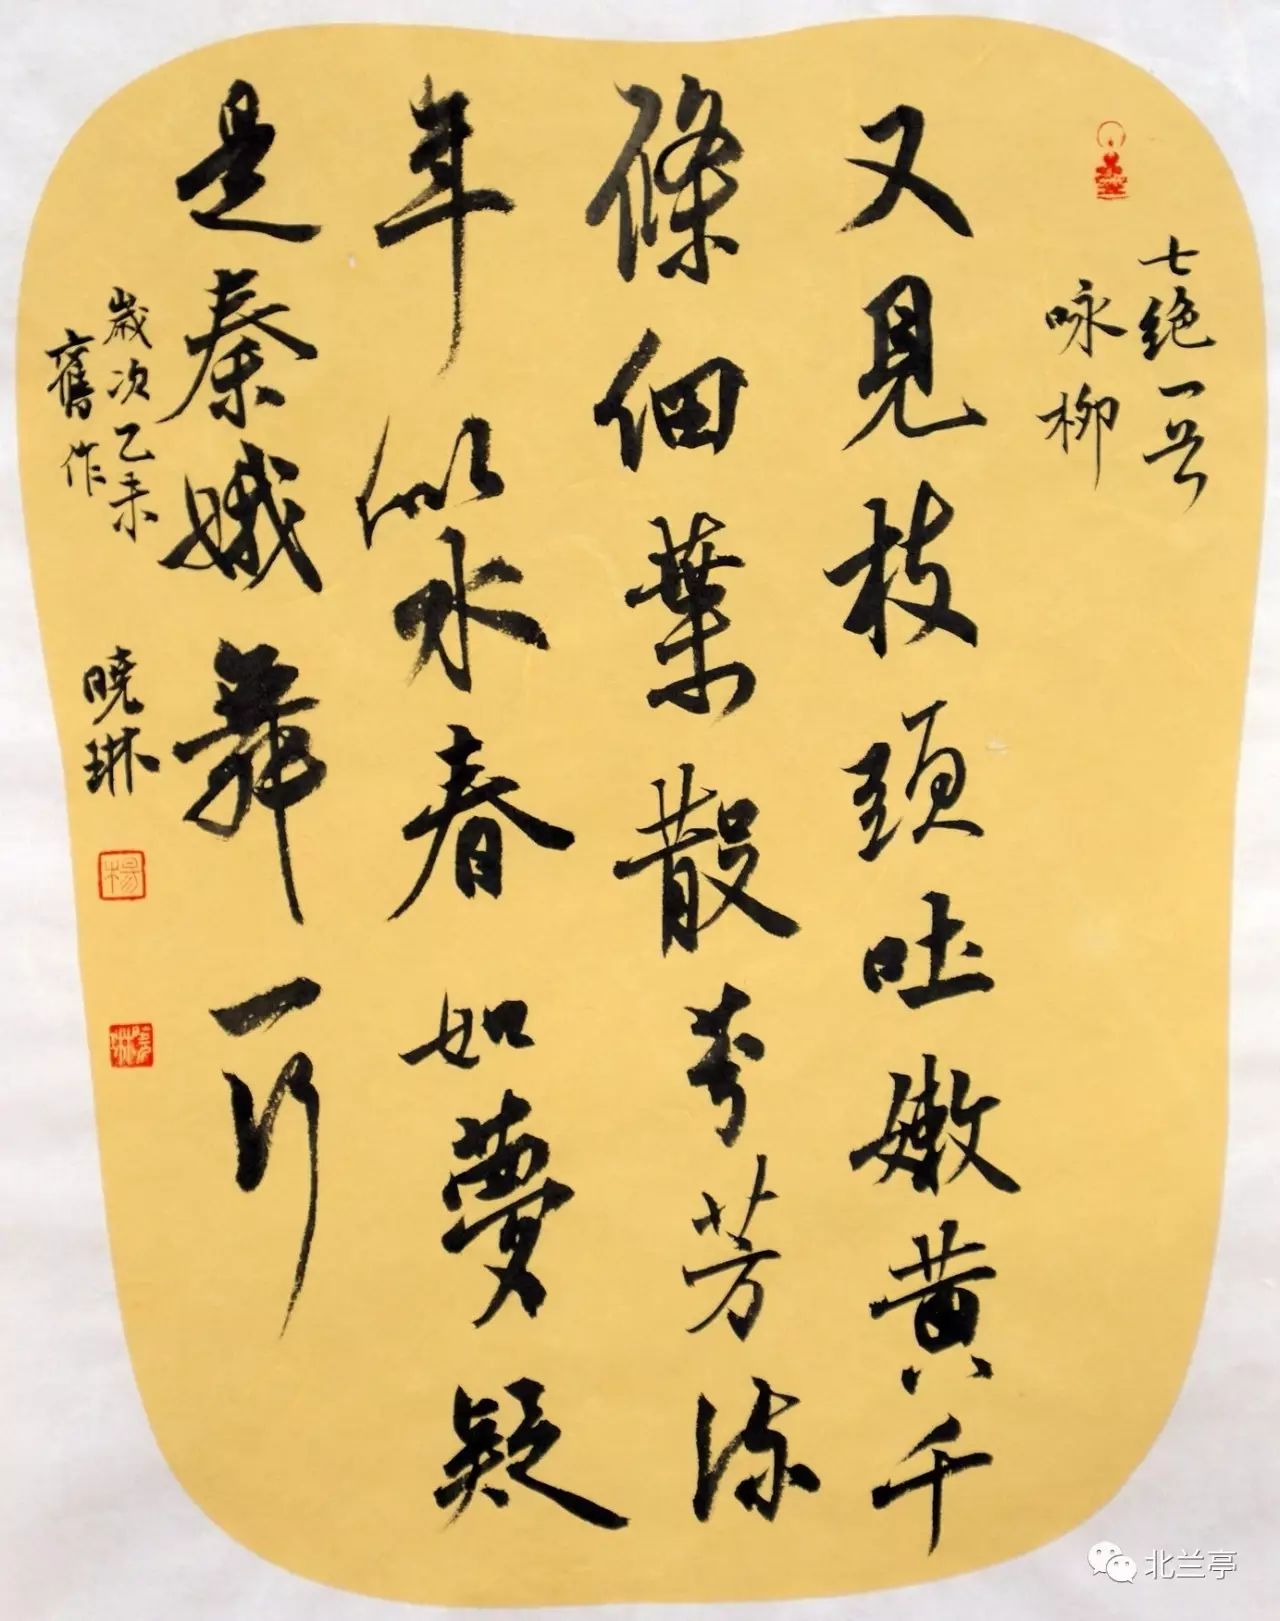 七绝一首
咏柳
又見枝頭吐嫩黄千
條細葉散芳流
年似水春如夢疑
是秦娥舞一行
歲次乙未
舊作
晓琳
楊
北兰亭